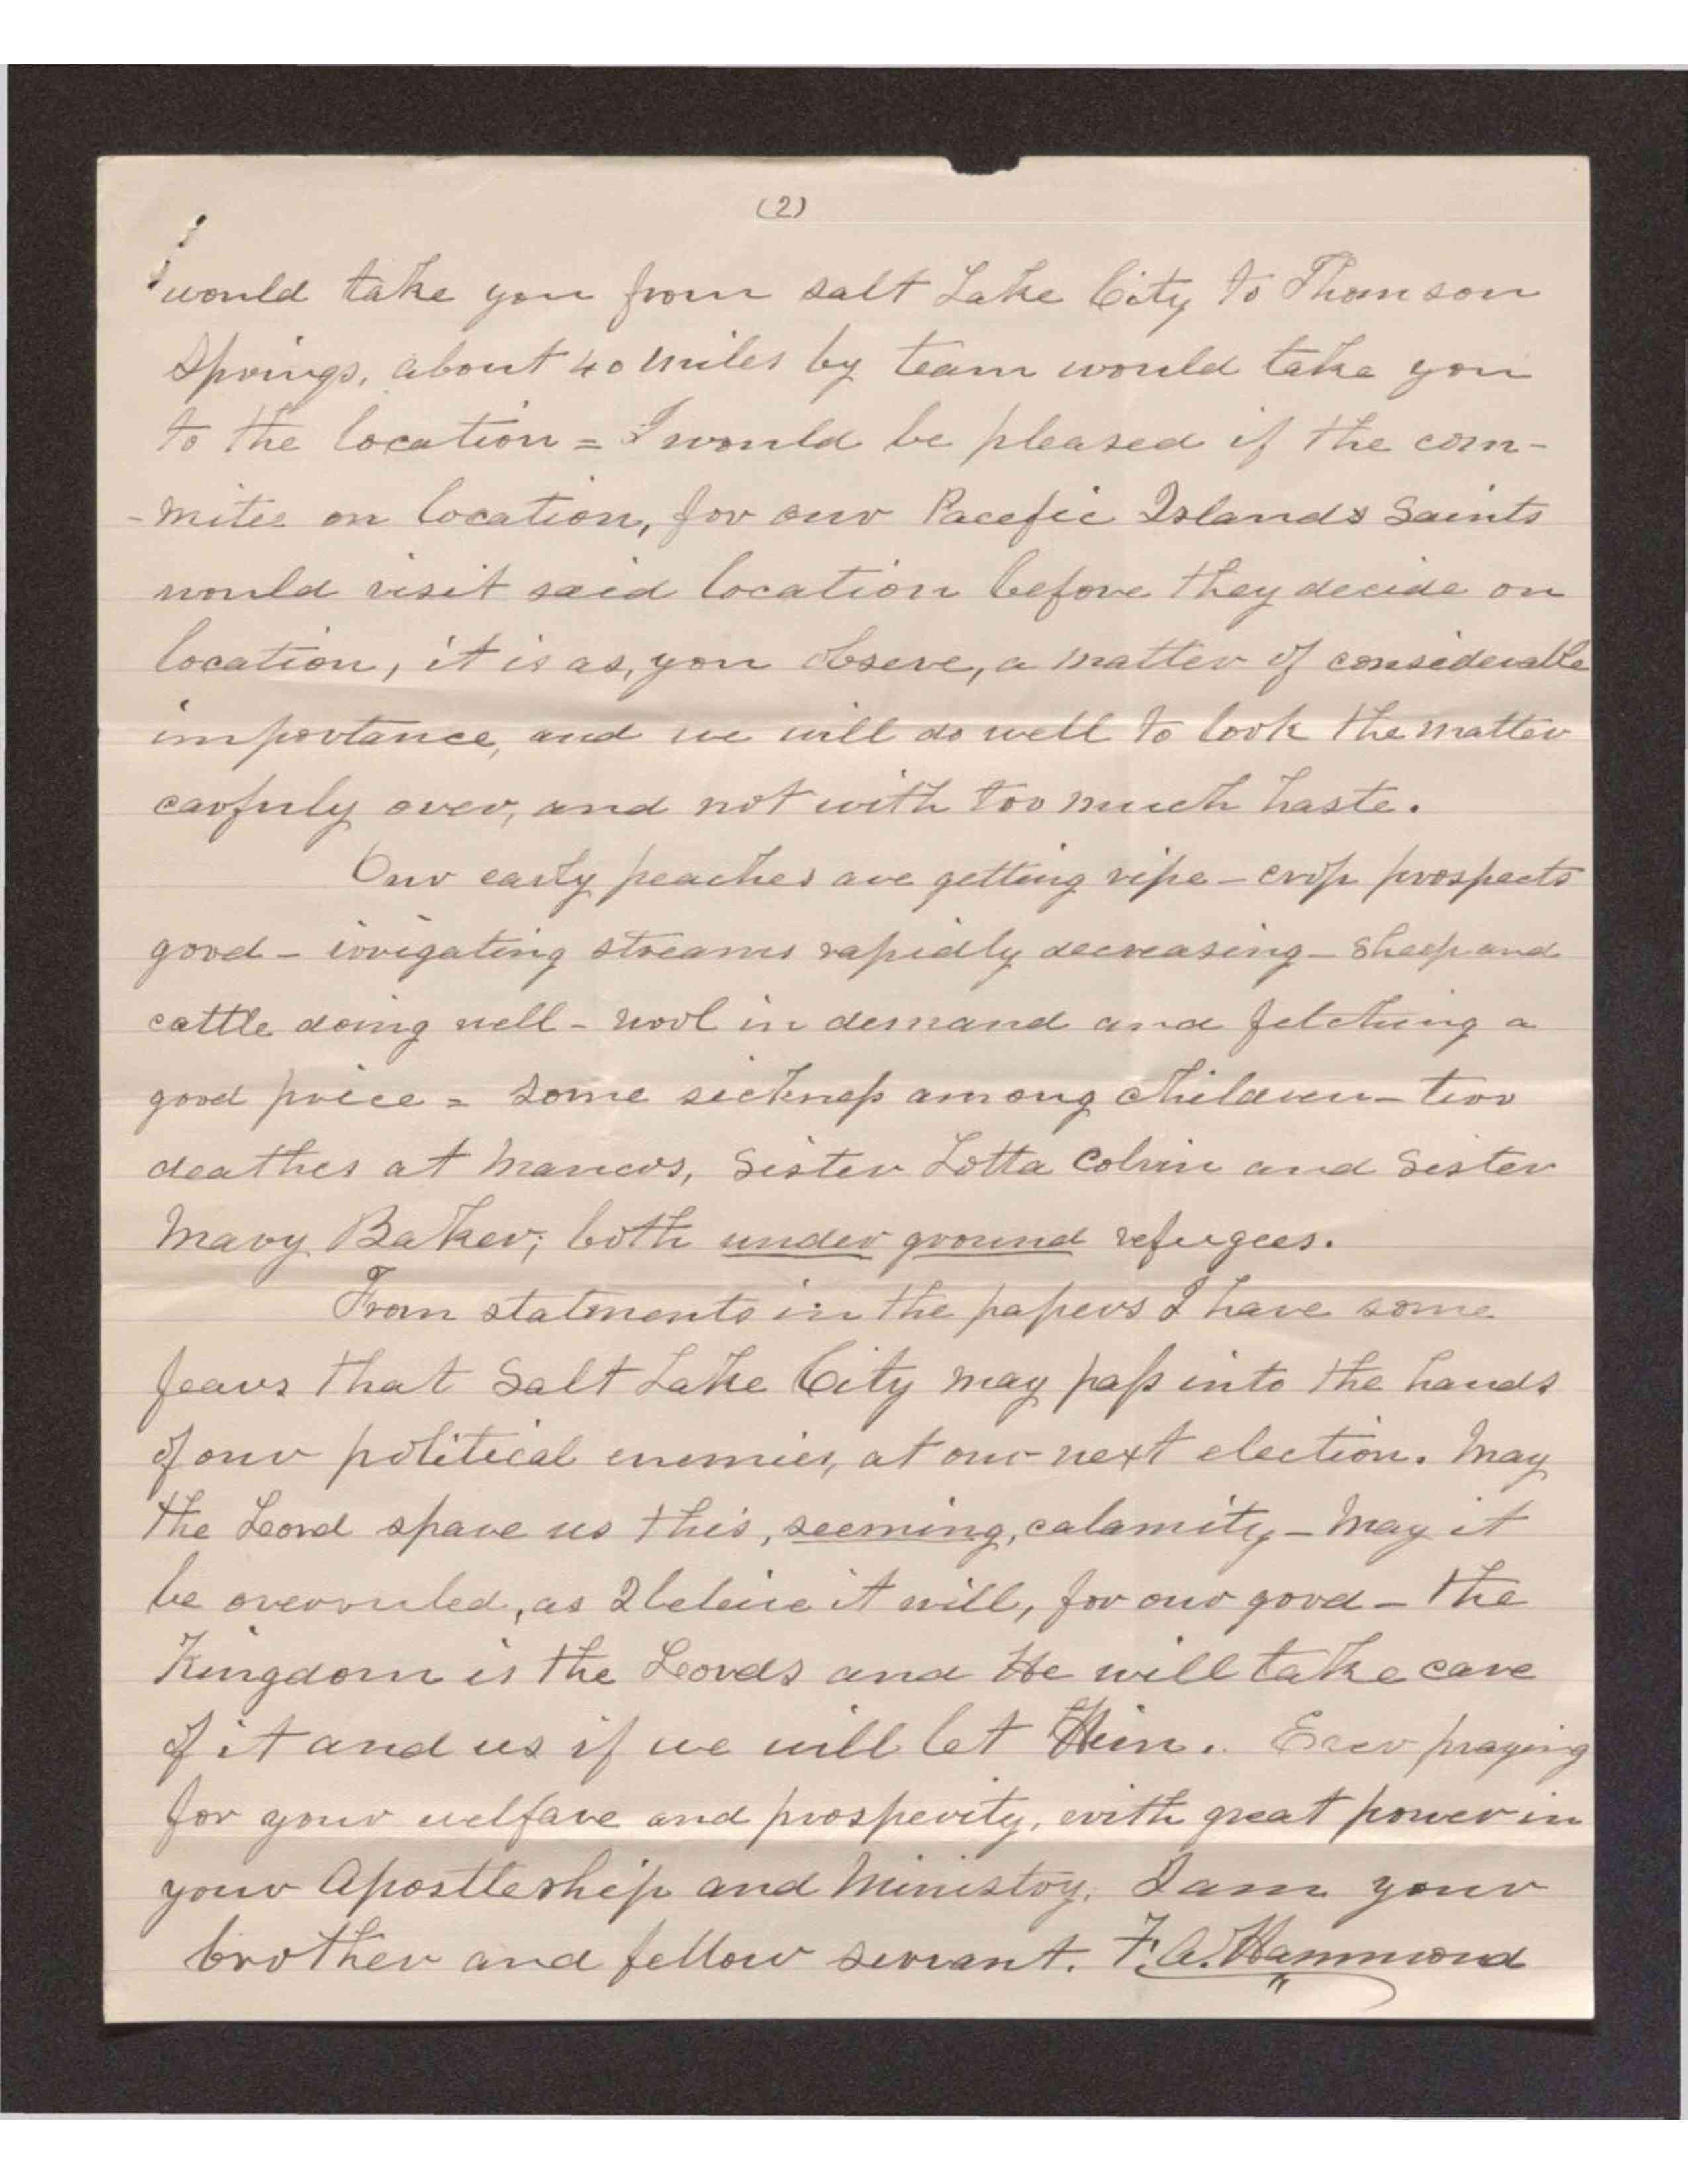 (2)
would take you from salt Lake City to Thomson
Springs, about 40 miles by team would take you
to the location = I would be pleased if the com-
-mitee on location, for our Pacefic Islands Saints
would visit said location before they decide on
location, it is as, you obseve, a matter of considerable
importance, and we will do well to look the matter
carfuly over, and not with too much haste.
Our early peaches are getting ripe - crop prospects
good - irrigating streams rapidly decreasing - sheep and
cattle doing well - wool in demand and fetching a
good price = some sickness among children - two
deathes at Mancos, Sister Lotta Colvin and Sister
Mary Baker; both under ground refugees.
From statments in the papers I have some
fears that Salt Lake City may pass into the hands
of our political enemies, at our next election. May
the Lord spare us this, seeming, calamity - May it
be overruled, as I beleive it will, for our good - the
Kingdom is the Lords and He will take care
of it and us if we will let Him. Ever praying
for your welfare and prosperity, with great power in
your Apostleship and Ministry. I am your
brother and fellow servant. F. A. Hammond